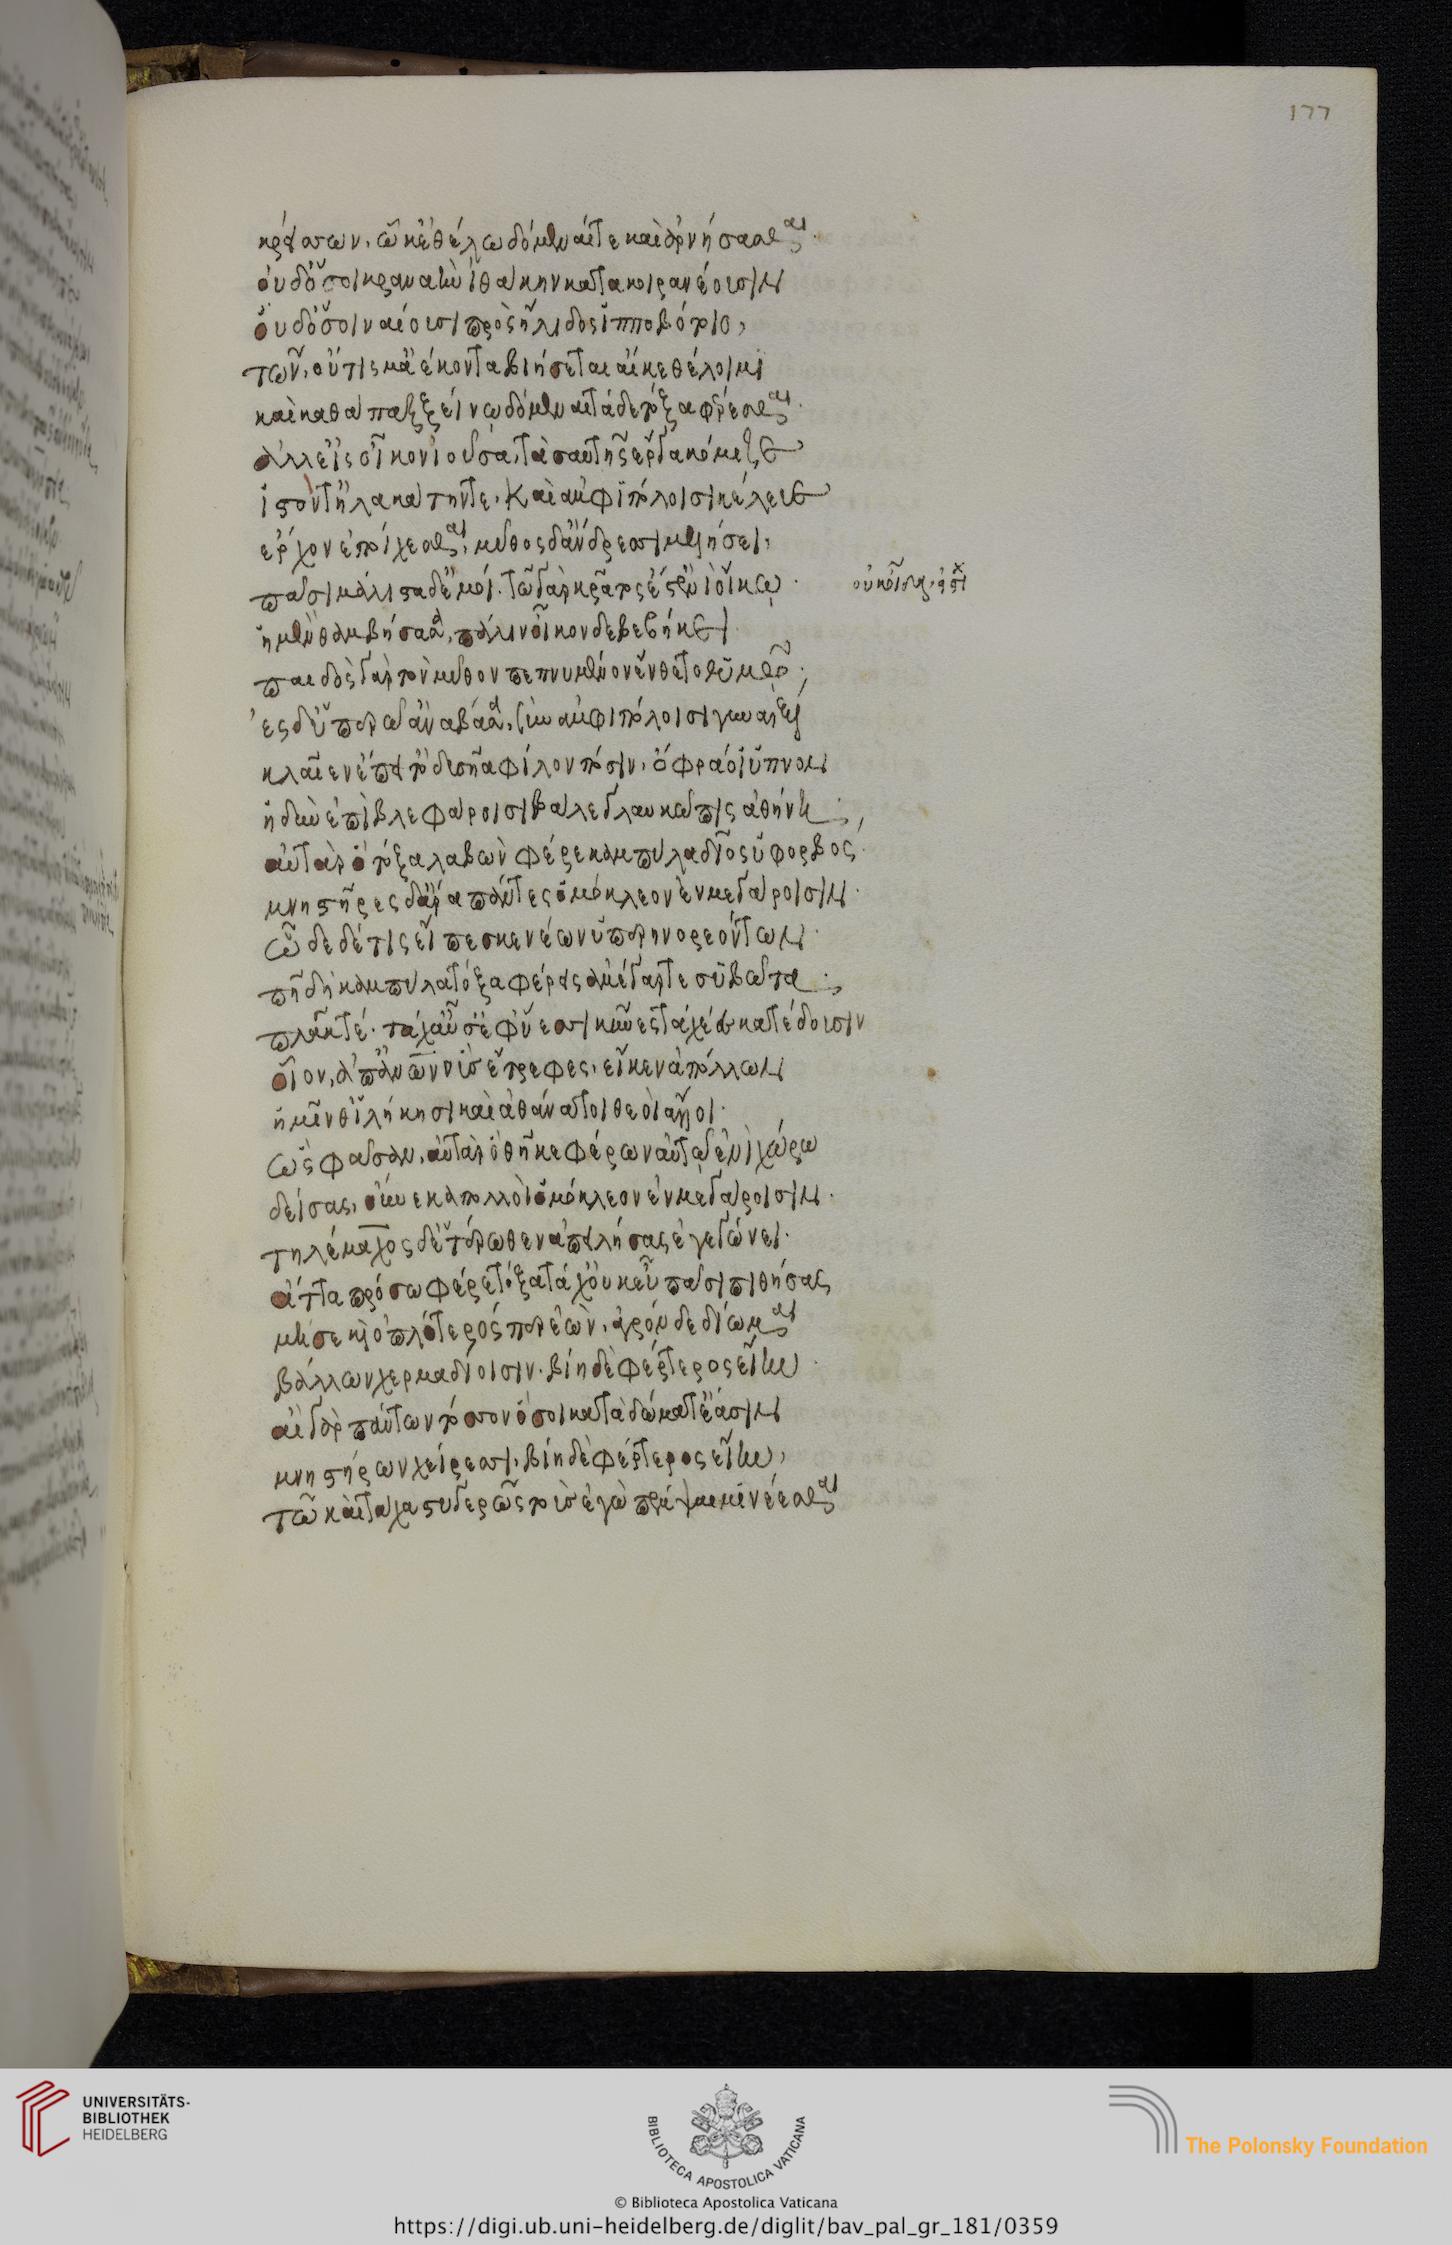 177
κρείσσων, ὧ κ' ἐθέλω δόμεναί τε καὶ ἀρνήσασθαι·
οὐδ' ὅσσοι κραναὴν ἰθάκην κάτα κοιρανέουσιν
οὐδ' ὅσσοι νήσοισι πρὸς ἤλιδος ἱπποβότοιο,
τῶν οὔτις μ' ἀέκοντα βιήσεται αἴ κε θέλοιμι
καὶ καθάπαξ ξείνῳ δόμεναι τάδε τόξα φέρεσθαι·
ἀλλ' εἰς οἶκον ἰοῦσα, τὰ σαυτῆς ἔργα κόμιζε
ἱστόν τ' ἠλακάτην τε, καὶ ἀμφιπόλοισι κέλευε
ἔργον ἐποίχεσθαι, μῦθος δ' ἄνδρεσσι μελήσει,
πᾶσι μάλιστα δ' ἐμοί. τοῦ γὰρ κράτος ἔστ' ἐνὶ οἴκῳ·
ἡ μὲν θαμβήσασα, πάλιν οἶκον δὲ βεβήκει
παιδὸς γὰρ μῦθον πεπνυμένον ἔνθετο θυμῷ·
ἐς δ' ὑπερῷ' ἀναβᾶσα, σὺν ἀμφιπόλοισι γυναιξὶ
κλαῖεν ἔπειτ' ὀδυσῆα φίλον πόσιν, ὄφρα οἱ ὕπνον
ἡδὺν ἐπὶ βλεφάροισι βάλε γλαυκῶπις ἀθήνη·
αὐτὰρ ὁ τόξα λαβὼν φέρε καμπύλα δῖος ὑφορβός·
μνηστῆρες δ' ἄρα πάντες ὁμόκλεον ἐν μεγάροισιν·
ὧδε δέ τις εἴπεσκε νέων ὑπερηνορεόντων·
πῆ δὴ καμπύλα τόξα φέρεις ἀμέγαρτε συβῶτα·
πλαγκτέ. τάχ' αὖ σ' ἐφ' ὕεσσι κύνες ταχέες κατέδονται
οἶον, ἀπ' ἀνθρώπων οὓς ἔτρεφες, εἴ κεν ἀπόλλων
ἡμῖν θ' ἱλήκησι καὶ ἀθάνατοι θεοὶ ἄλλοι·
ὣς φάσαν, αὐτὰρ ὁ θῆκε φέρων αὐτῷ ἐνὶ χώρῳ
δείσας, οὕνεκα πολλοὶ ὁμόκλεον ἐν μεγάροισιν·
τηλέμαχος δ' ἑτέρωθεν ἀπειλήσας ἐγεγώνει·
ἄττα πρόσω φέρε τόξα τάχ' οὐκ εὖ πᾶσι πιθήσας
μή σε καὶ ὁπλότερός περ ἐὼν, ἀγρόνδε δίωμαι
βάλλων χερμαδίοισιν· βίη δὲ φέρτερος εἶμι·
αἲ γὰρ πάντων τόσσον ὅσοι κατὰ δώματ' ἔασιν
μνηστήρων χείρεσσι, βίη δὲ φέρτερος εἴην,
τῷ καὶ τάχα στυγερῶς τιν' ἐγὼ πέμψαιμι νέεσθαι
UNIVERSITÄTS-
BIBLIOTHEK
HEIDELBERG
BIBLIOTECA APOSTOLICA VATICANA
The Polonsky Foundation
© Biblioteca Apostolica Vaticana
https://digi.ub.uni-heidelberg.de/diglit/bav_pal_gr_181/0359